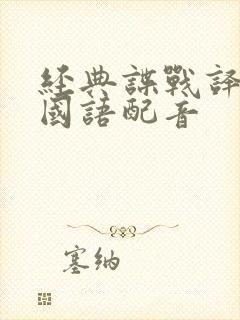 經典諜戰譯
國語配音
塞納